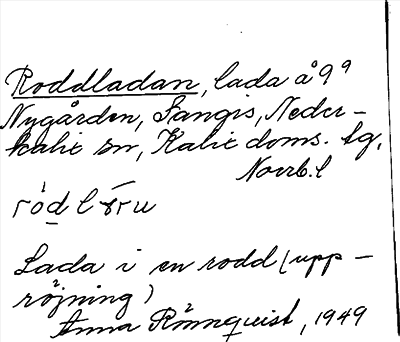 Roddladan, lada å 9⁹
Nygården, Sangis, Neder-
kalix sn, Kalix doms. tg,
Norrb. l
Lada i en rodd (upp-
röjning)
Anna Rönnquist, 1949